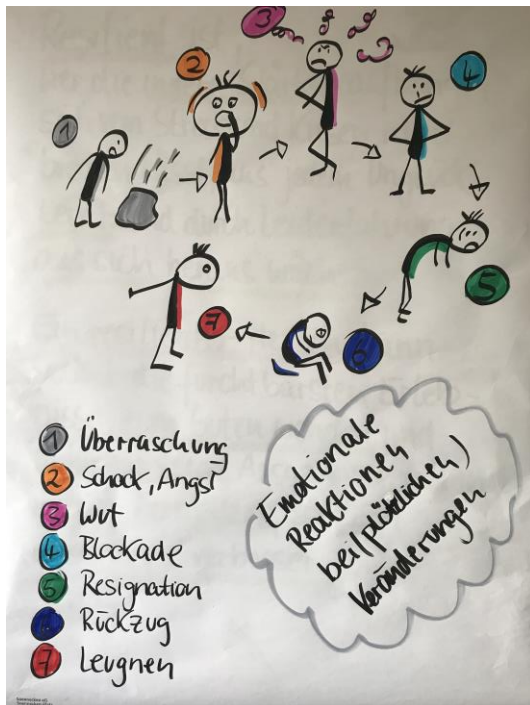 1
2
3
4
5
6
7
1 Überraschung
2 Schock, Angst
3 Wut
4 Blockade
5 Resignation
6 Rückzug
7 Leugnen
Emotionale
Reaktionen
bei (plötzlichen)
Veränderungen